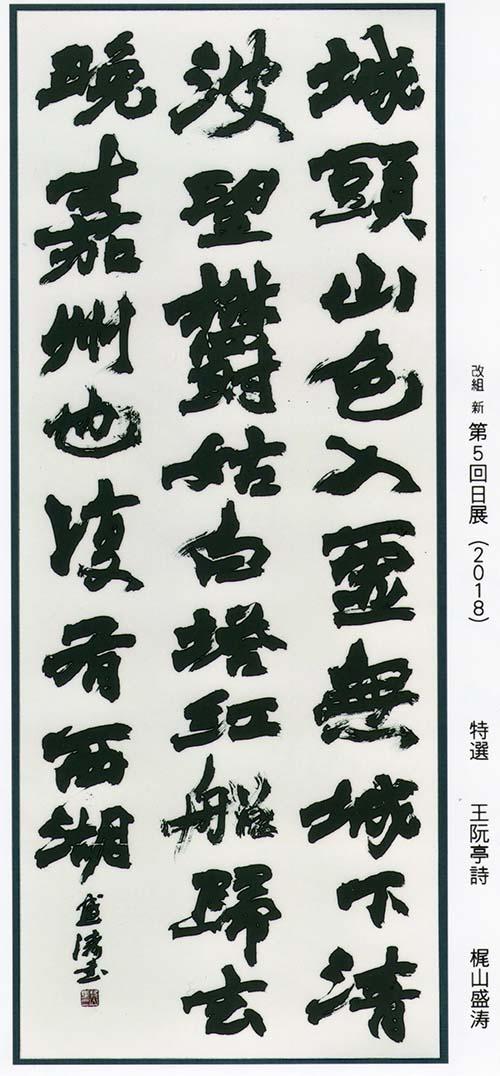 改組 新 第5回日展（2018） 特選 王阮亭詩 梶山盛涛
城頭山色入虚無城下清
波望欝姑白塔紅船歸去
晩嘉州也復有西湖
盛涛書